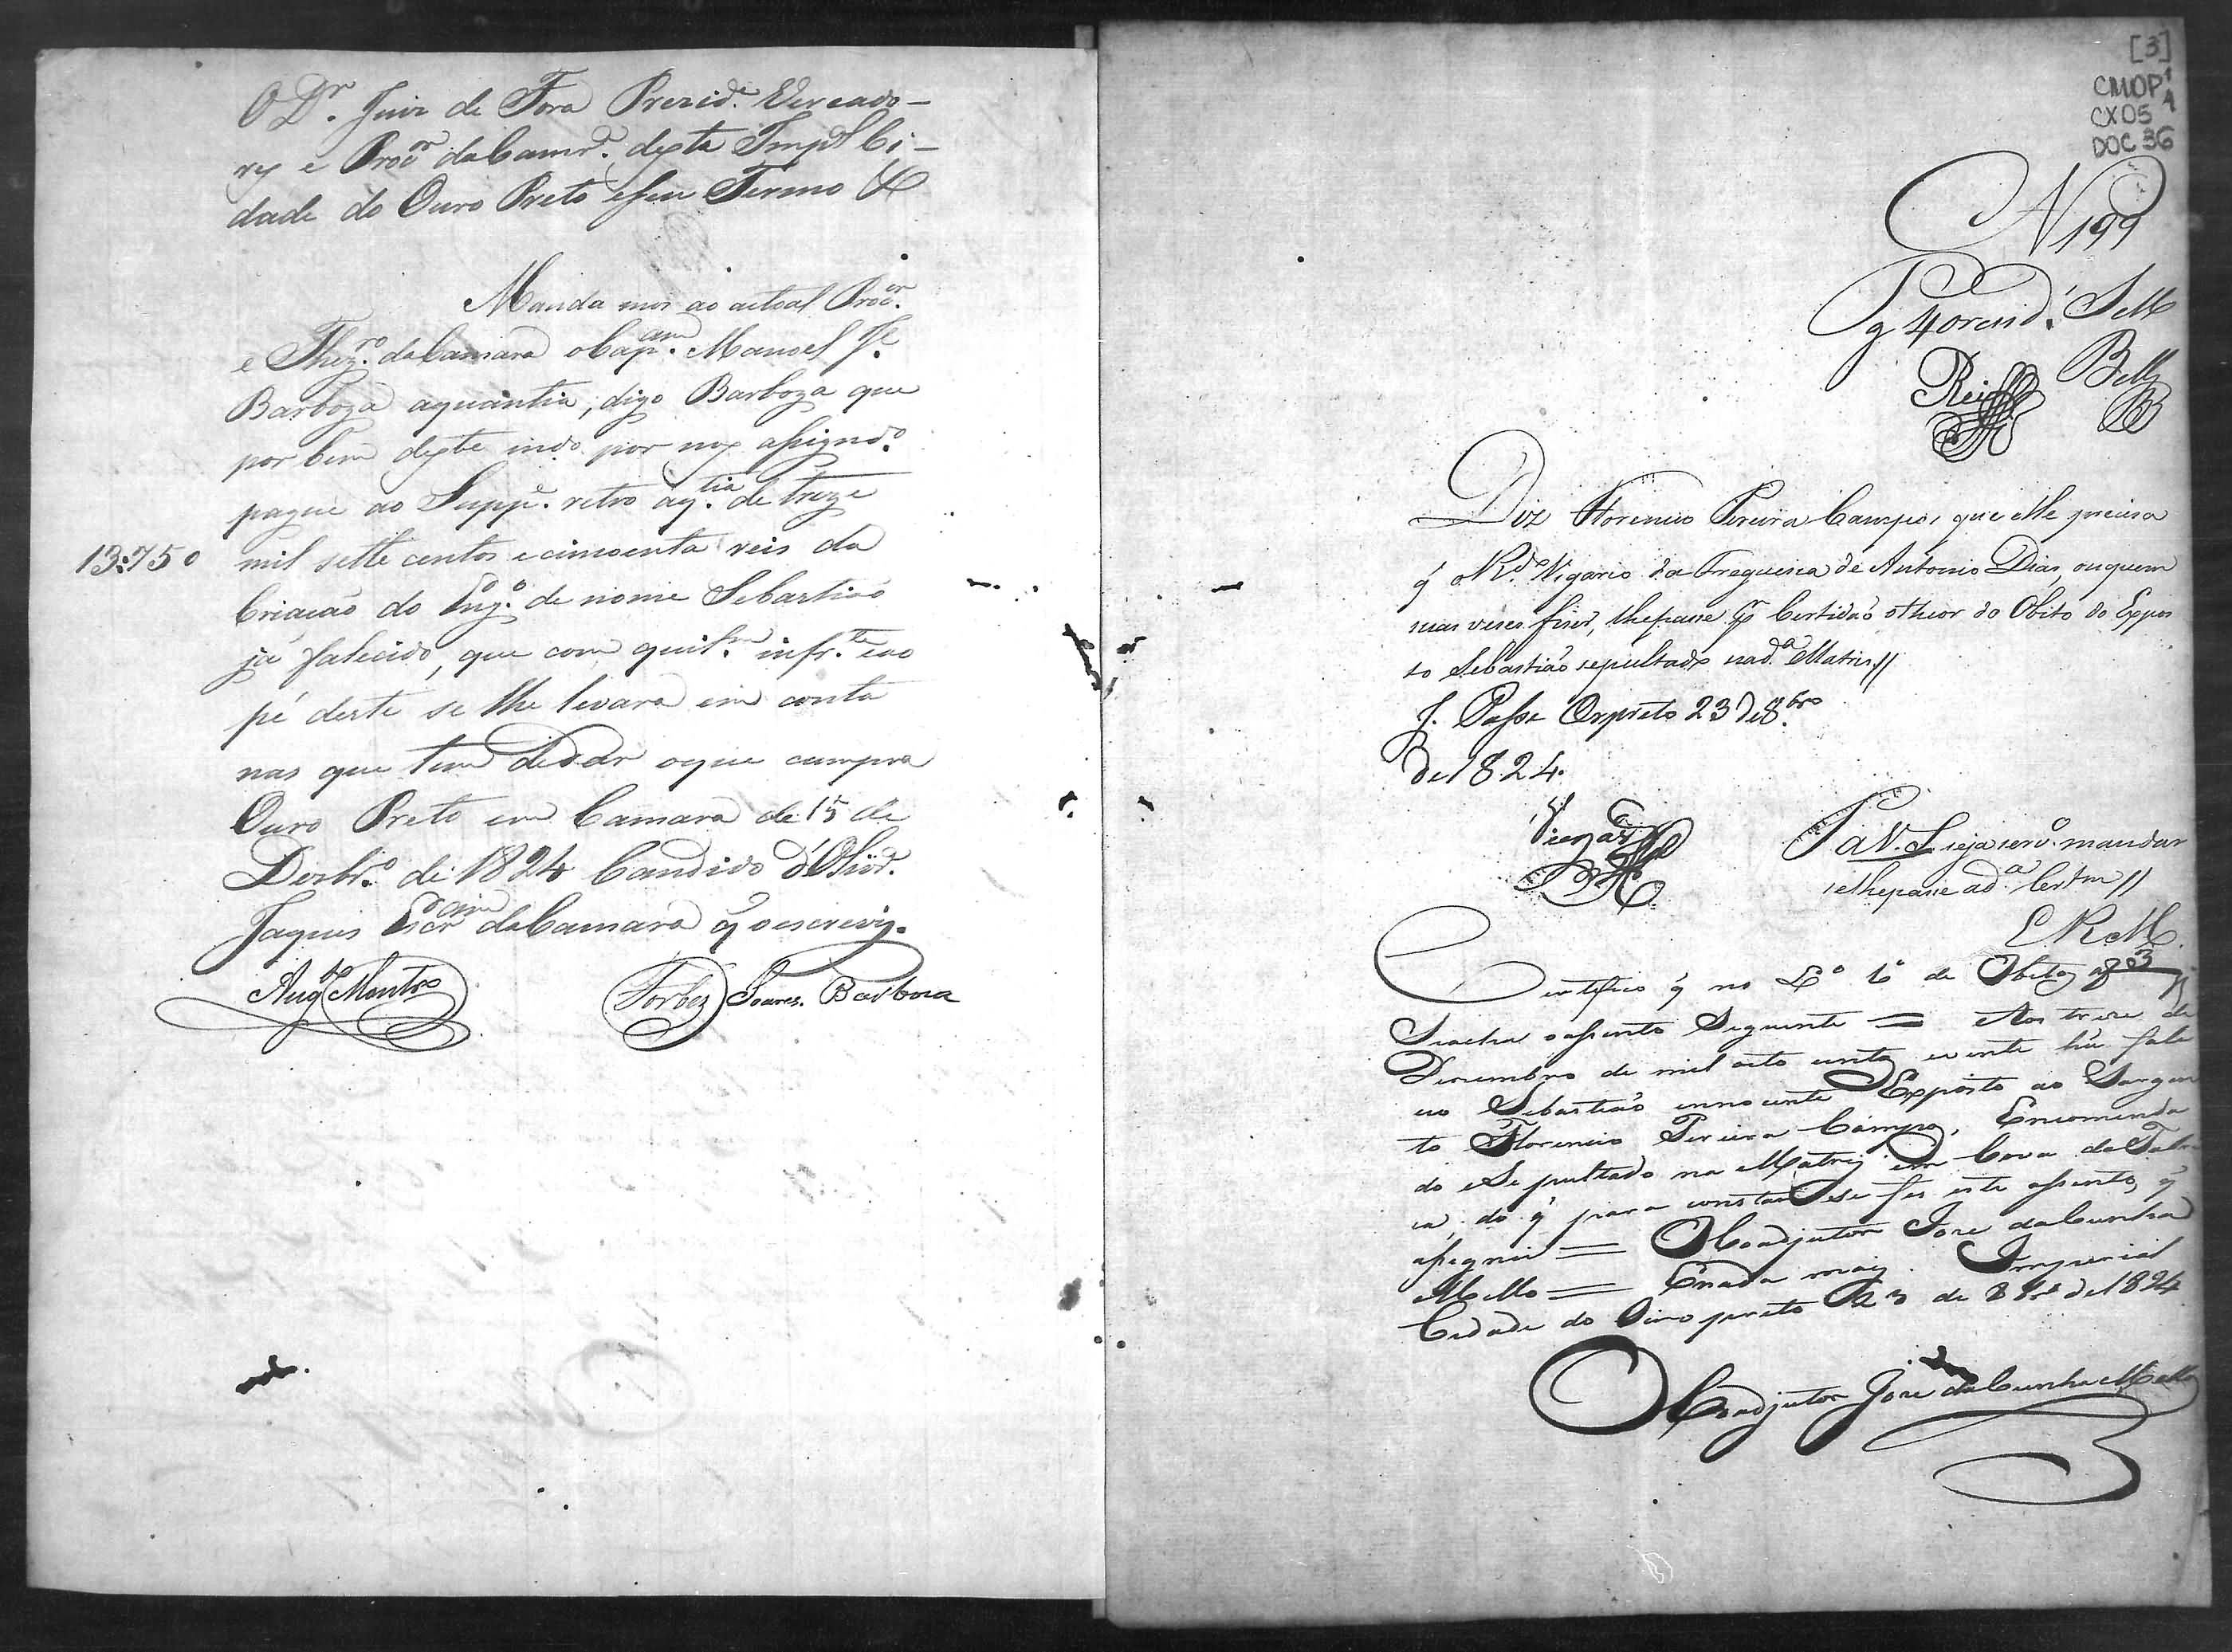 O Dr. Juiz de Fora Prezide. Vereado-
res e Procor. da Camra. desta Impal Ci-
dade do Ouro Preto e seu Termo &
Manda mos ao actoal Procor.
e Thezro. da Camara o Capam. Manoel Je.
Barboza aquantia, digo Barboza que
por bem deste indo por nos assignado.
pague ao Suppe. retro aqtia. de treze
13:750
mil sette centos e cincoenta reis da
Criacaõ do Engo. de nome Sebastiaõ
já falecido, que com quitam. infrte. e ao
pé deste se lhe levara em conta
nas que tem de dar o que cumpra
Ouro Preto em Camara de 15 de
Dezbro. de 1824 Candido d'Olivra.
Jaques Escram da Camara q̃ o escrevy.
Augto Montro Forbes Soares. Barboza
[3]
CMOP
CX05
DOC 36
N 199
Pg 40 reis d. Sello
Reis
Diz Florencio Pereira Campos, que elle precisa
q̃ o Rdo. Vigario da Freguesia de Antonio Dias, ou quem
suas veses fiser, lhe passe pr Certidaõ o theor do Obito do Expos
to Sebastiaõ sepultado na da. Matris//
J. Passe Orpreto 23 de 8bro.
de 1824.
P a V. S. seja servo. mandar
se lhe passe a da. Certm //
E R M.
Certifico q̃ no Lo 6o de Obitos af 83
Se acha o assento Seguinte = Aos treze de
Dezembro de mil oito centos e vinte hũ fale
ceo Sebastiaõ innocente Exposto ao Sargen
to Florencio Pereira Campos, Encomenda
do e Sepultado na Matriz em Cova da Fabri
ca, do q̃ para constar se fes este assento, q̃
assignei = O Coadjutor Jose da Cunha
Mello = E nada mais. Imperial
Cidade do Ouro preto 23 de 8bro de 1824
O Coadjutor Jose da Cunha Mello